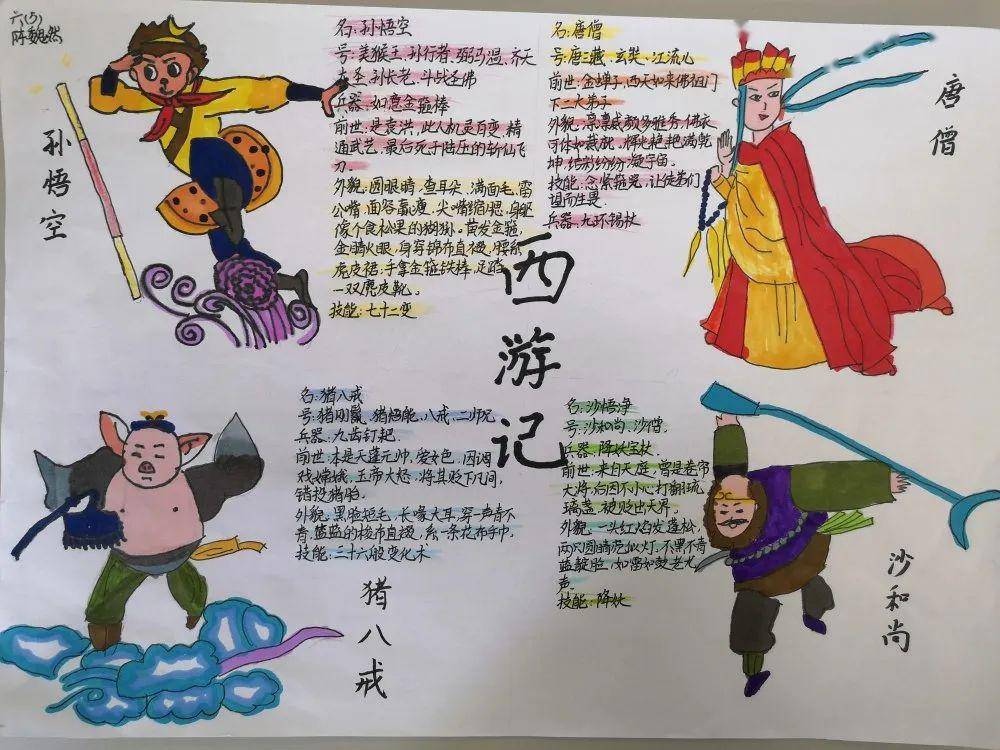 六(5)
陈魏然
孙悟空
名:孙悟空
号:美猴王、孙行者、弼马温、齐天
大圣、孙长老、斗战圣佛
兵器:如意金箍棒
前世:是袁洪,此人机灵百变、精
通武艺,最后死于陆压的斩仙飞
刀。
外貌:圆眼睛,查耳朵,满面毛,雷
公嘴,面容羸瘦,尖嘴缩腮,身躯
像个食松果的猢狲。黄发金箍,
金睛火眼,身穿锦布直裰,腰系
虎皮裙,手拿金箍铁棒,足踏
一双麂皮靴。
技能:七十二变
名:唐僧
号:唐三藏、玄奘、江流儿
前世:金蝉子,西天如来佛祖门
下二大弟子
外貌:凛凛威颜多雅秀,佛衣
可体如裁就。辉光艳艳满乾
坤,结彩纷纷凝宇宙。
技能:念紧箍咒,让徒弟们
望而生畏
兵器:九环锡杖
唐僧
西游记
名:猪八戒
号:猪刚鬣、猪悟能、八戒、二师兄
兵器:九齿钉耙
前世:本是天蓬元帅,爱女色,因调
戏嫦娥,玉帝大怒,将其贬下凡间,
错投猪胎。
外貌:黑脸短毛,长喙大耳,穿一声青不
青、蓝蓝的梭布直裰,系一条花布手巾。
技能:三十六般变化术
猪八戒
名:沙悟净
号:沙和尚、沙僧
兵器:降妖宝杖
前世:来自天庭,曾是卷帘
大将,后因不小心打翻琉
璃盏,被贬出天界。
外貌:一头红焰发蓬松,
两只圆睛亮似灯,不黑不青
蓝靛脸,如雷如鼓老龙
声。
技能:降妖
沙和尚